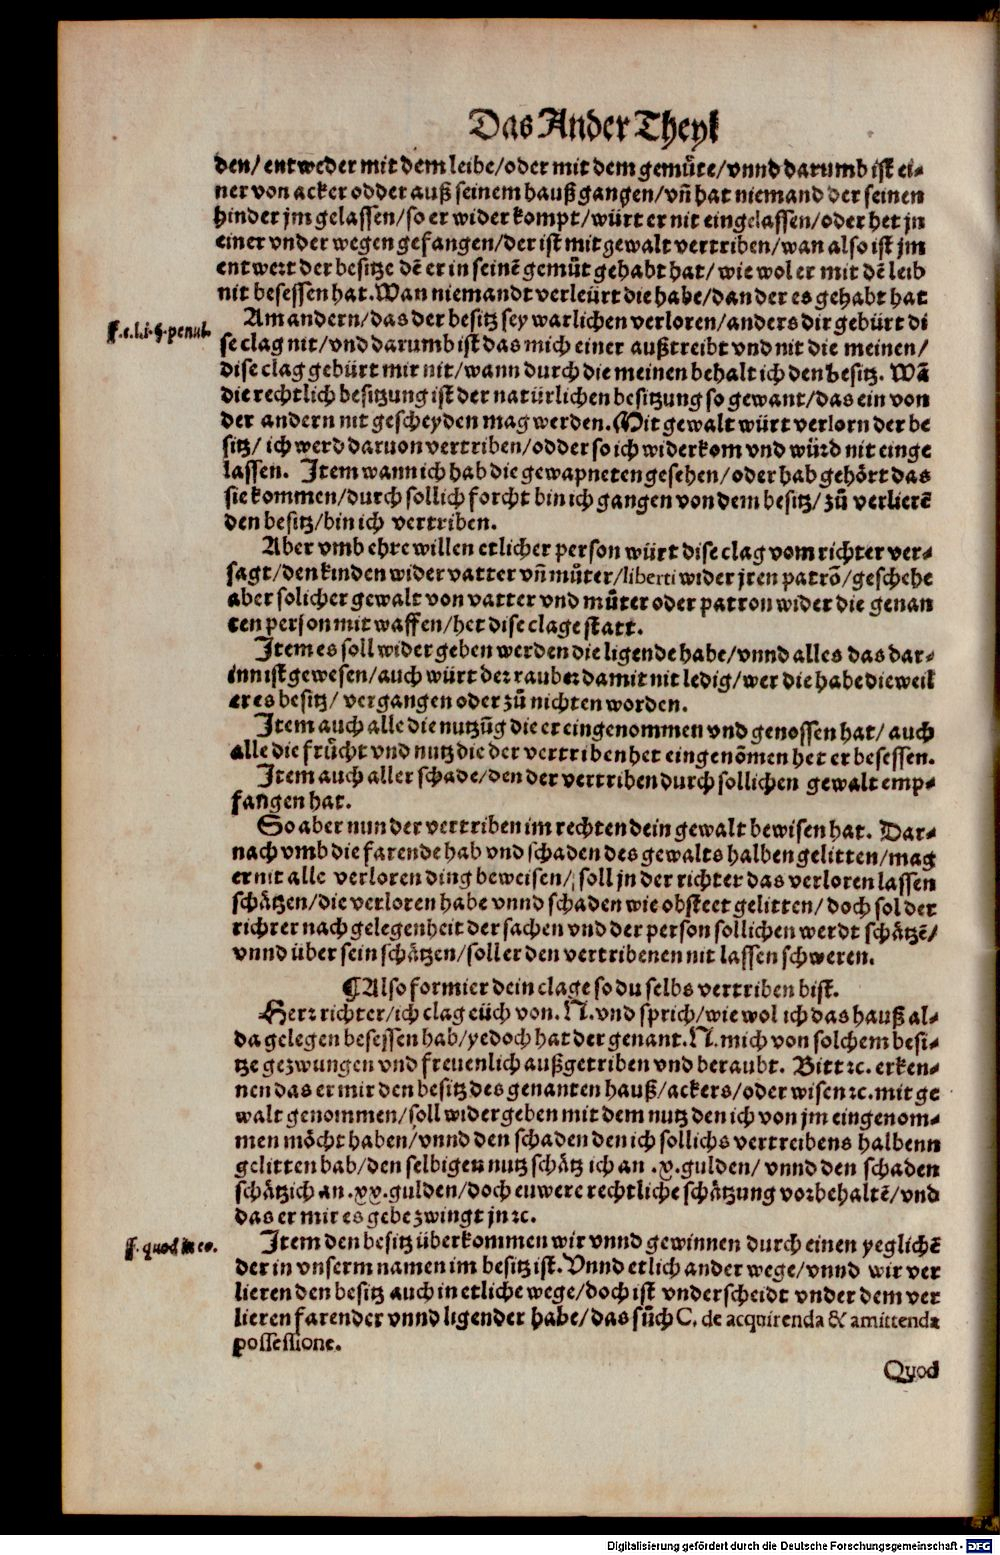 Das Ander Theyl
den/ entweder mit dem leibe/oder mit dem gemüte/vnnd darumb ist ei-
ner von acker odder auß seinem hauß gangen/vñ hat niemand der seinen
hinder jm gelassen/so er wider kompt/würt er nit eingelassen/oder het jn
einer vnder wegen gefangen/der ist mit gewalt vertriben/wan also ist jm
entwert der besitze dē er in seinē gemüt gehabt hat/ wie wol er mit dē leib
nit besessen hat. Wan niemandt verleürt die habe/dan der es gehabt hat
Am andern/das der besitz sey warlichen verloren/anders dir gebürt di
ff.e.l.i.§.penul.
se clag nit/vnd darumb ist das mich einer außtreibt vnd nit die meinen/
dise clag gebürt mir nit/wann durch die meinen behalt ich den besitz. Wā
die rechtlich besitzung ist der natürlichen besitzung so gewant/das ein von
der andern nit gescheyden mag werden. Mit gewalt würt verlorn der be
sitz/ ich werd daruon vertriben/odder so ich widerkom vnd würd nit einge
lassen. Item wann ich hab die gewapneten gesehen/oder hab gehört das
sie kommen/durch sollich forcht bin ich gangen von dem besitz/ zů verlierē
den besitz/bin ich vertriben.
Aber vmb ehre willen etlicher person würt dise clag vom richter ver-
sagt/den kinden wider vatter vñ můter/liberti wider jren patrō/geschehe
aber solicher gewalt von vatter vnd můter oder patron wider die genan
ten person mit waffen/het dise clage statt.
Item es soll wider geben werden die ligende habe/vnnd alles das dar-
inn ist gewesen/auch würt der rauber damit nit ledig/wer die habe dieweil
er es besitz/ vergangen oder zů nichten worden.
Item auch alle die nutzūg die er eingenommen vnd genossen hat/ auch
alle die frücht vnd nutz die der vertriben het eingenōmen het er besessen.
Item auch aller schade/den der vertriben durch sollichen gewalt emp-
fangen hat.
So aber nun der vertriben im rechten dein gewalt bewisen hat. Dar-
nach vmb die farende hab vnd schaden des gewalts halben gelitten/mag
er nit alle verloren ding beweisen/ soll jn der richter das verloren lassen
schätzen/die verloren habe vnnd schaden wie obsteet gelitten/ doch sol der
richter nach gelegenheit der sachen vnd der person sollichen werdt schätzē/
vnnd über sein schätzen/soll er den vertribenen nit lassen schweren.
¶Also formier dein clage so du selbs vertriben bist.
Herr richter/ich clag eüch von. N. vnd sprich/wie wol ich das hauß al-
da gelegen besessen hab/yedoch hat der genant. N. mich von solchem besi-
tze gezwungen vnd freuenlich außgetriben vnd beraubt. Bitt ꝛc. erken-
nen das er mir den besitz des genanten hauß/ackers/oder wisen ꝛc. mit ge
walt genommen/soll wider geben mit dem nutz den ich von jm eingenom-
men möcht haben/vnnd den schaden den ich sollichs vertreibens halbenn
gelitten hab/den selbigen nutz schätz ich an .x. gulden/ vnnd den schaden
schätz ich an .xx. gulden/doch euwere rechtliche schätzung vorbehaltē/vnd
das er mir es gebe zwingt jn ꝛc.
Item den besitz überkommen wir vnnd gewinnen durch einen yeglichē
ff. quod in eo.
der in vnserm namen im besitz ist. Vnnd etlich ander wege/vnnd wir ver
lieren den besitz auch in etliche wege/doch ist vnderscheidt vnder dem ver
lieren farender vnnd ligender habe/das sůch C. de acquirenda & amittenda
possessione.
Quod
Digitalisierung gefördert durch die Deutsche Forschungsgemeinschaft - DFG